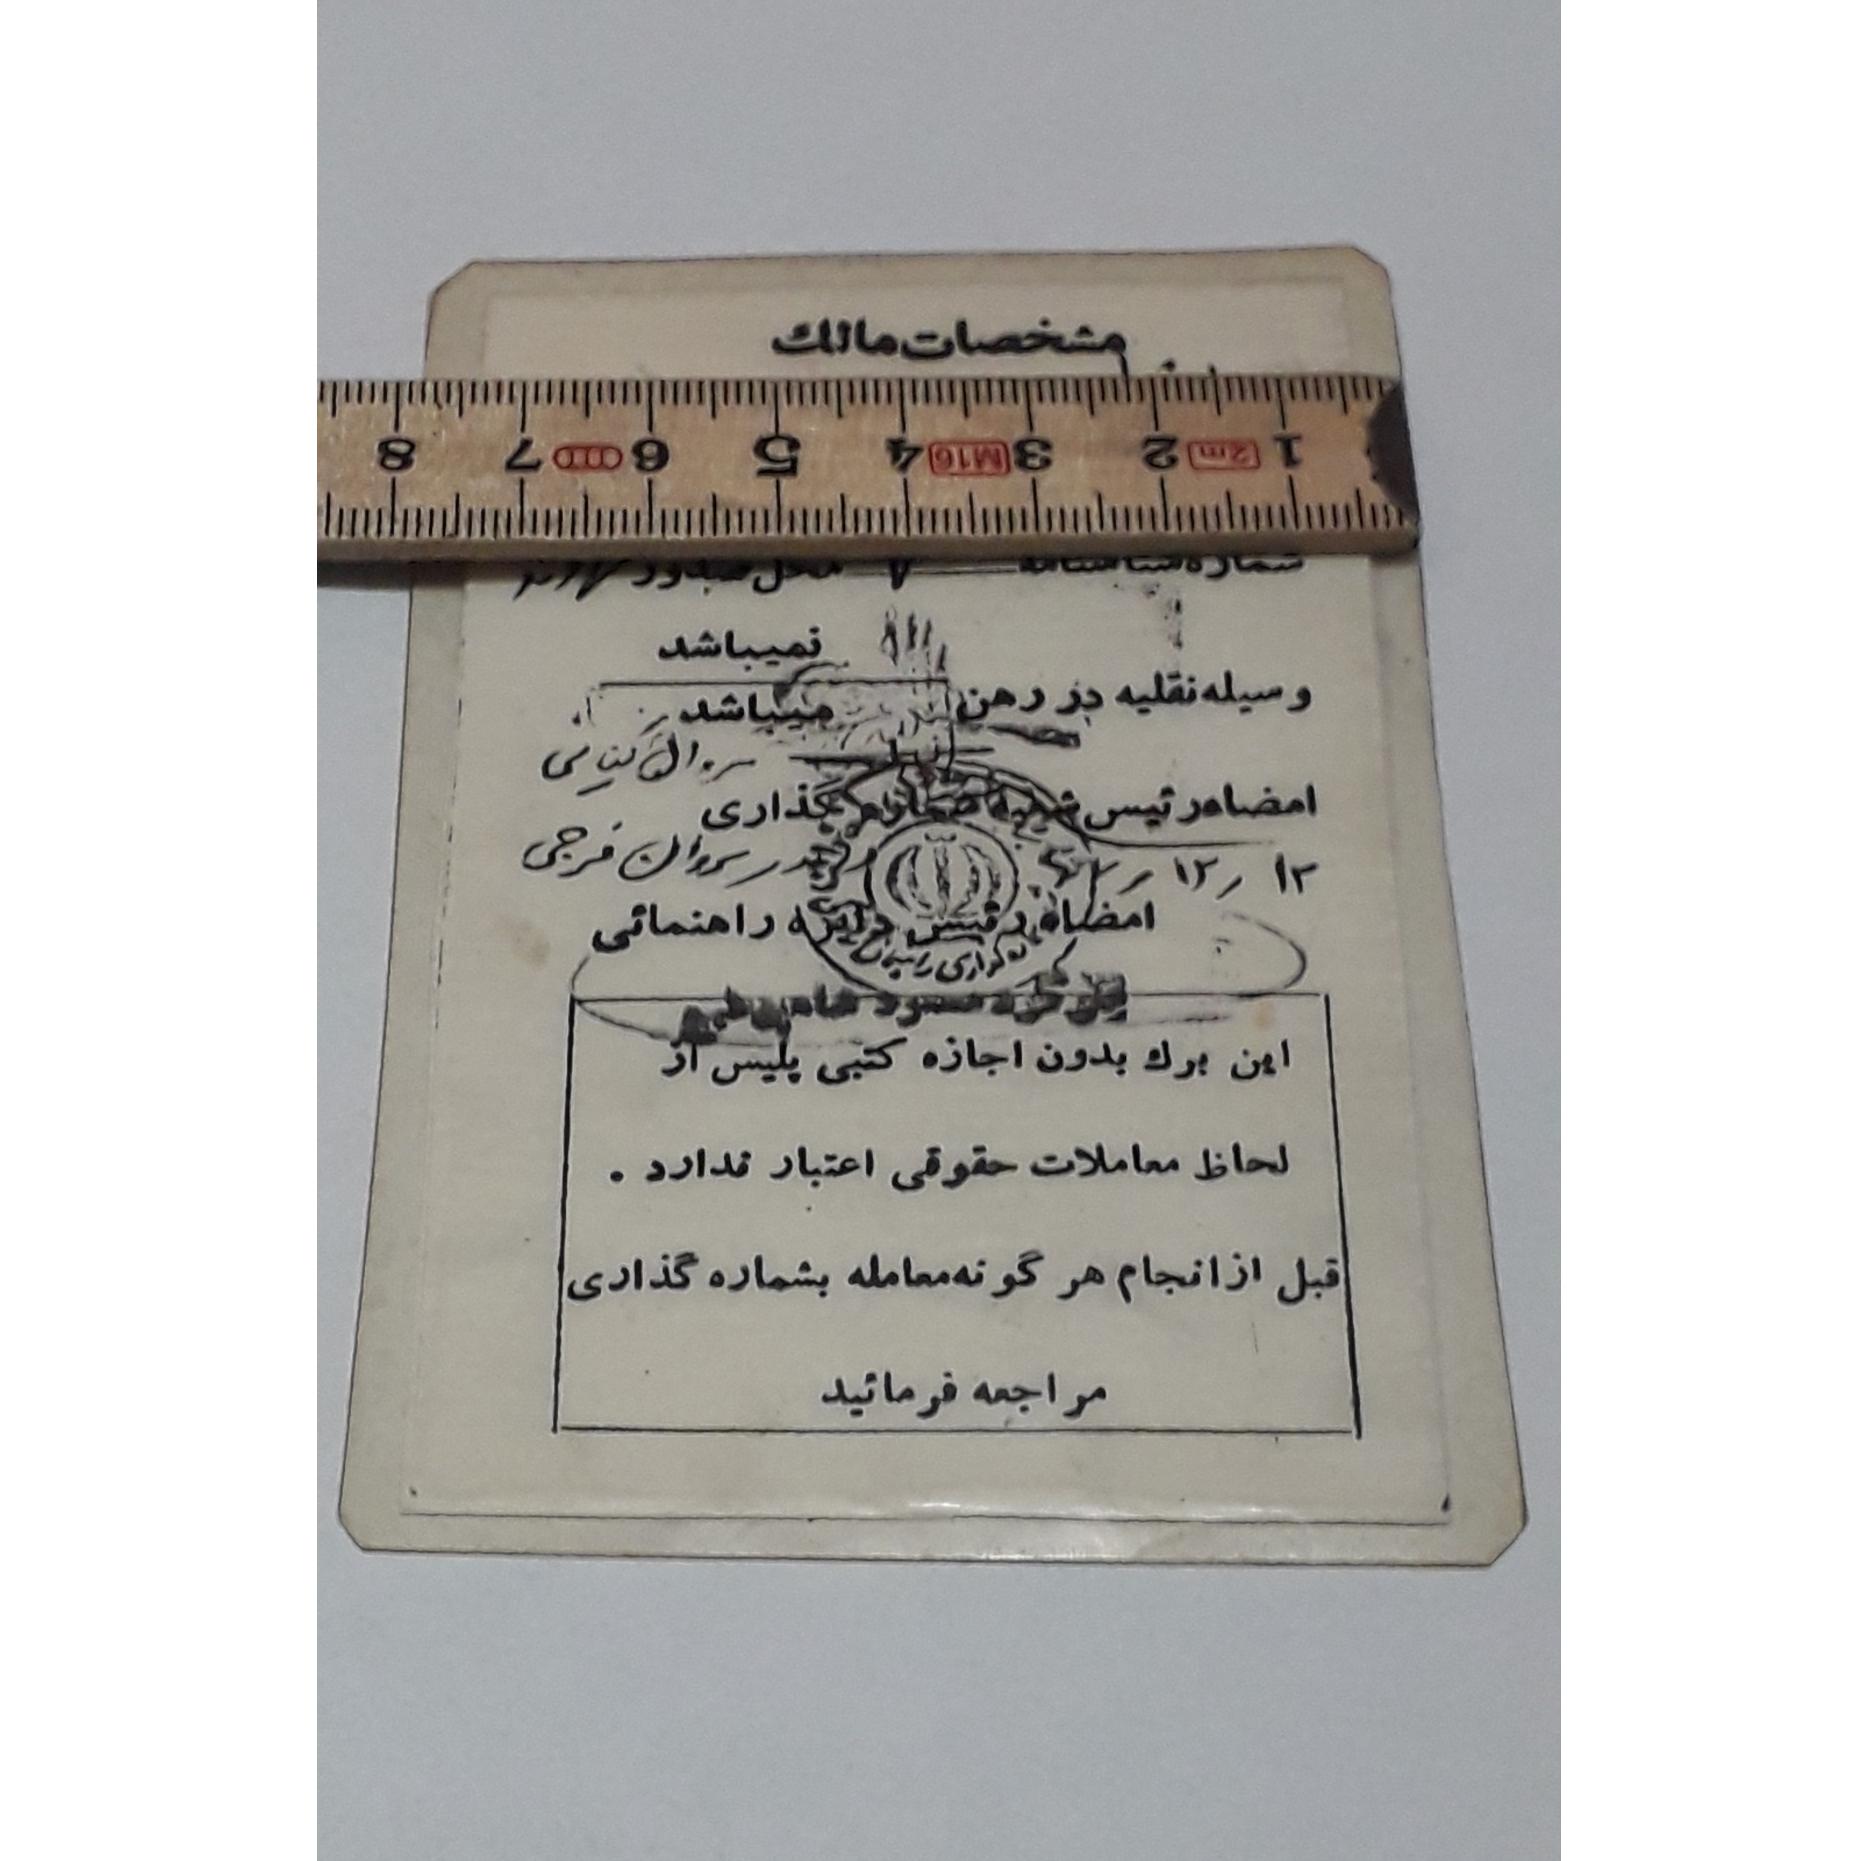 مشخصات مالك
1 2m 2 3 M16 4 5 6 7 8
شماره شناسنامه محل صدور
نمیباشد
وسیله نقلیه در رهن
میباشد
سروان
امضاء رئیس شعبه شماره گذاری
۱۲ ر ۱۲ ر
سروان فرجی
امضاء رئیس دایره راهنمائی
این برك بدون اجازه کتبی پلیس از
لحاظ معاملات حقوقی اعتبار ندارد .
قبل از انجام هر گونه معامله بشماره گذاری
مراجعه فرمائید